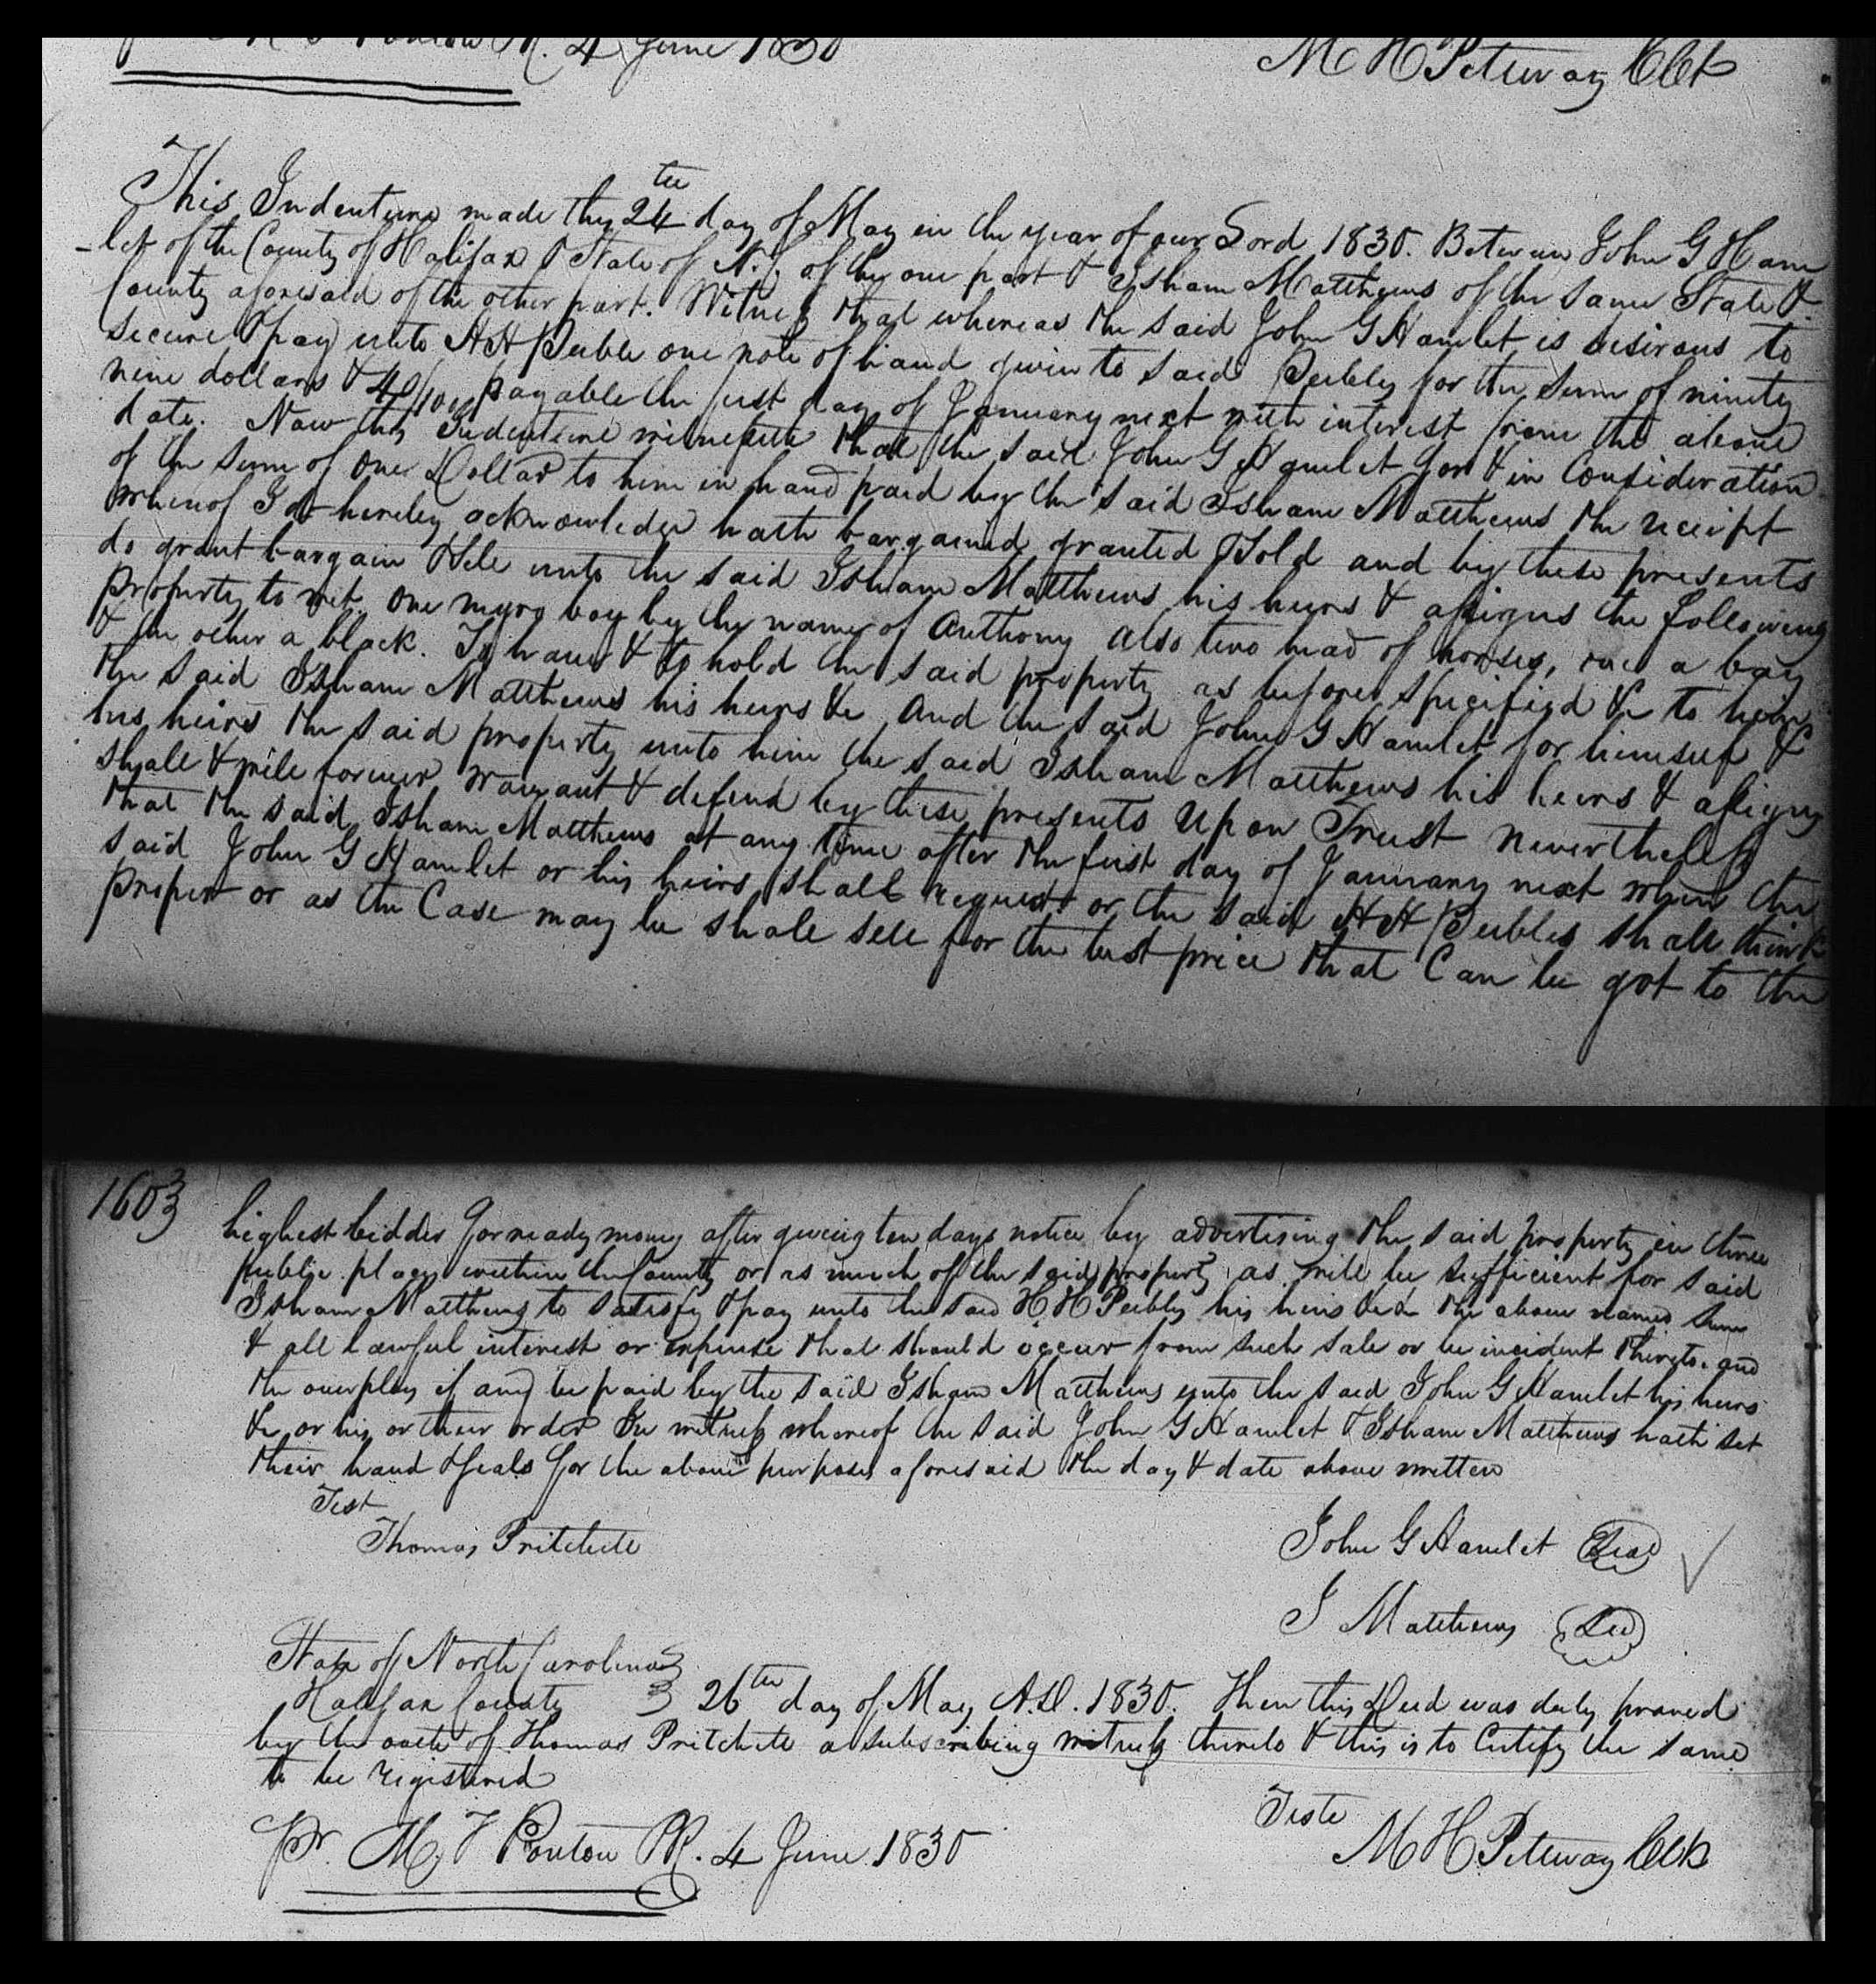 Ponton R. 4 June 1830
M H Pettway Clk
This Indenture made this 24th day of May in the year of our Lord 1830. Between John G Ham
-let of the County of Halifax & State of N.C. of the one part & Isham Matthews of the same State &
County aforesaid of the other part. Witness that whereas the said John G Hamlet is desirous to
secure & pay unto H H Peeble one note of hand given to said Peebles for the sum of ninety
nine dollars & 40/100 payable the first day of January next with interest from the above
date. Now this Indenture witnesseth that the said John G Hamlet for & in Consideration
of the sum of one Dollar to him in hand paid by the said Isham Matthews the receipt
whereof I do hereby acknowledge hath bargained granted & Sold and by these presents
do grant bargain & Sele unto the said Isham Matthews his heirs & assigns the following
property to wit. One negro boy by the name of Anthony also two head of horses, one a bay
& the other a black. To have & to hold the said property as before specified &c to him
the said Isham Matthews his heirs &c And the said John G Hamlet for himself &
his heirs the said property unto him the said Isham Matthews his heirs & assigns
shall & will forever Warrant & defend by these presents Upon Trust nevertheless
that the said Isham Matthews at any time after the first day of January next when the
said John G Hamlet or his heirs shall request or the said H H Peebles shall think
proper or as the Case may be shall sell for the best price that Can be got to the
1603
highest bidder for ready money after giving ten days notice by advertising the said property in three
public places within the County or as much of the said property as will be sufficient for said
Isham Matthews to satisfy & pay unto the said H H Peebles his heirs &c the above named sum
& all lawful interest or expense that should occur from such sale or be incident thereto. and
the overplus if any be paid by the said Isham Matthews unto the said John G Hamlet his heirs
&c or his or their order In witness whereof the said John G Hamlet & Isham Matthews hath set
their hand & seals for the above purposes aforesaid the day & date above written
Test
Thomas Pritchett
John G Hamlet Seal
I Matthews Seal
State of North Carolina
Halifax County 26th day of May A.D. 1830. Then this Deed was duly proved
by the oath of Thomas Pritchett a subscribing witness thereto & this is to Certify the same
to be registered
Teste
pr. M T Ponton R. 4 June 1830
M H Pettway Clk